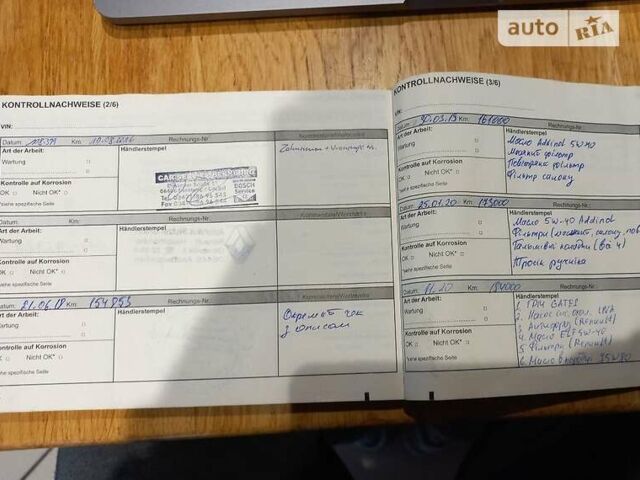 auto RIA
KONTROLLNACHWEISE (2/6)
VIN:
Datum: Km: 10.08.2016 Rechnungs-Nr.:
Art der Arbeit:
Händlerstempel
Wartung
Zahnriemen +
Kontrolle auf Korrosion
OK Nicht OK*
BOSCH
Service
*siehe spezifische Seite
Datum: Km: Rechnungs-Nr.:
Art der Arbeit:
Händlerstempel
Wartung
Kontrolle auf Korrosion
OK Nicht OK*
*siehe spezifische Seite
Datum: 21.06.18 Km: 154853 Rechnungs-Nr.:
Art der Arbeit:
Händlerstempel
Wartung
Окремий чек
з описом
Kontrolle auf Korrosion
OK Nicht OK*
*siehe spezifische Seite
KONTROLLNACHWEISE (3/6)
VIN:
Datum: 30.03.19 Km: 161000
Art der Arbeit:
Händlerstempel
Wartung
Масло Addinol 5W40
Масляний фільтр
Повітряний фільтр
Фільтр салону
Kontrolle auf Korrosion
OK Nicht OK*
*siehe spezifische Seite
Datum: 25.01.20 Km: 173000
Art der Arbeit:
Händlerstempel
Wartung
Масло 5W-40 Addinol
Фільтри (масляний, салону, пов
Гальмівні колодки (всі 4)
Тросик ручніка
Kontrolle auf Korrosion
OK Nicht OK*
*siehe spezifische Seite
Datum: 11.20 Km: 184000
Art der Arbeit:
Händlerstempel
Wartung
1. ГРМ GATES
2. Насос
3. Антифриз (Renault)
4. Масло ELF 5W-40
5. Фільтри (Renault)
6. Масло в коробці 75W80
Kontrolle auf Korrosion
OK Nicht OK*
*siehe spezifische Seite